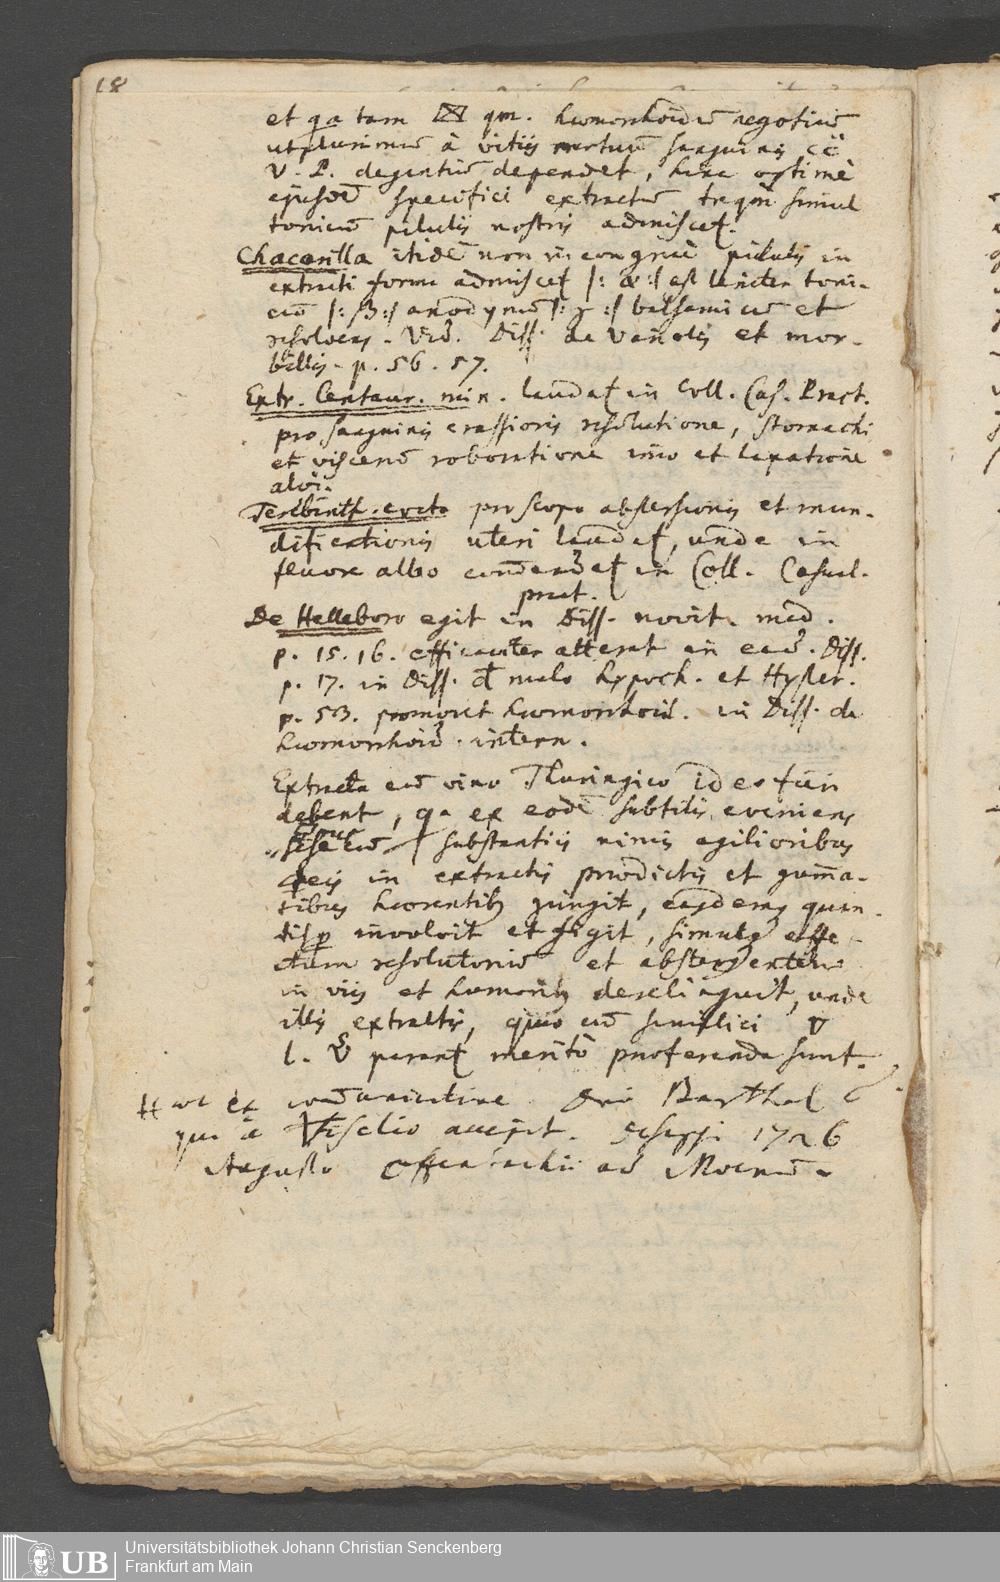 18
et qa tam qm. haemorrhoidū negotiū
utplurimū à vitiis sanguinis
V. P. degentiū dependet, hinc optimè
ejusdē specifici extractū simul
tonicū pilulis nostris admiscet.
Chacarilla itidē non incongruè pilulis in
extracti forma admiscet |: α :| est leniter toni-
cū |: β :| anodynū |: γ :| balsamicū et
resolvens. Vid. Diss. de Variolis et mor-
billis. p. 56. 57.
Extr. Centaur. min. laudat in Coll. Cas. Pract.
pro sanguinis crassioris resolutione, stomachi
et viscerū roboratione imo et laxatione
alvi.
Terebinth. cocta pro scopo abstersionis et mun-
dificationis uteri laudat, unde in
fluore albo in Coll. Casual.
pract.
De Helleboro egit in Diss. novit. med.
p. 15. 16. efficaciter alterat in ead. Diss.
p. 17. in Diss. d malo hypoch. et Hyster.
p. 53. promovet haemorrhoid. in Diss. de
haemorrhoid. intern.
Extracta cū vino Thuringico ideo fieri
debent, qa ex eodē subtilis eveniens
substantiis nimis agilioribus
in extractis praedictis et gumma-
tibus haerentib jungit, easdemq quan-
involvit et figit, simulq effe-
ctum resolutoriū et abstergentem
in viis et humorib derelinquit, unde
illis extractis, quae cū simplici
l. parant meritò praeferenda sunt.
Haec ex communicatione Dni Barthol
qui à accepit. descripsi 1726
Augusto Offenbachii ad Moenū.
UB
Universitätsbibliothek Johann Christian Senckenberg
Frankfurt am Main